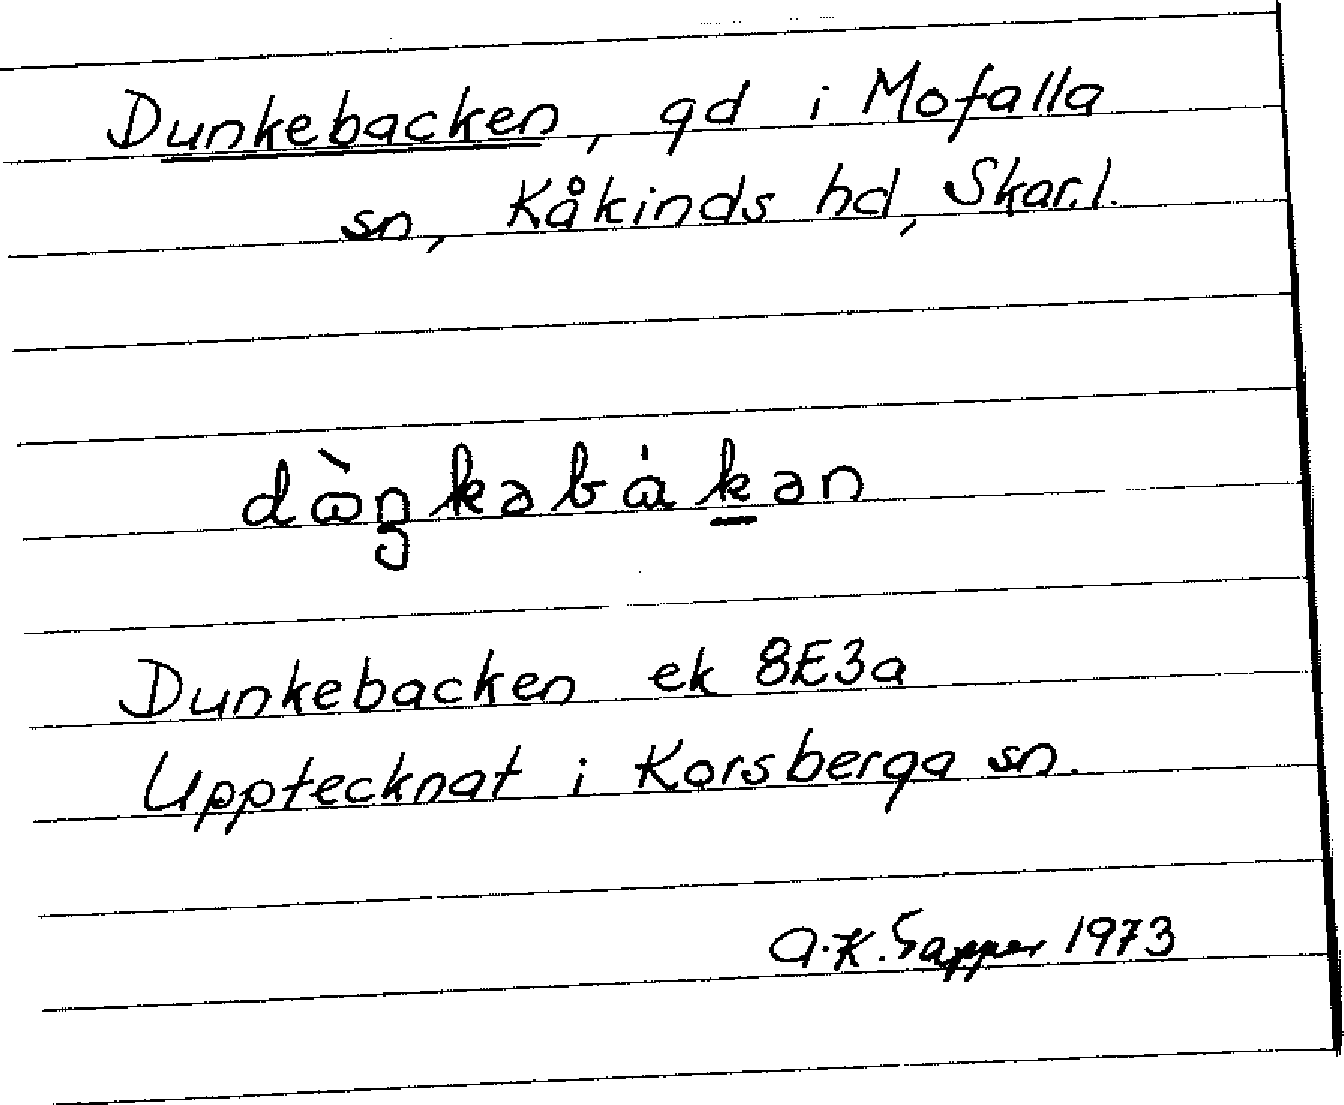 Dunkebacken, gd i Mofalla
sn, Kåkinds hd, Skar.l.
dὼŋkəbȧkən
Dunkebacken ek 8E3a
Upptecknat i Korsberga sn.
A.K. Sapper 1973